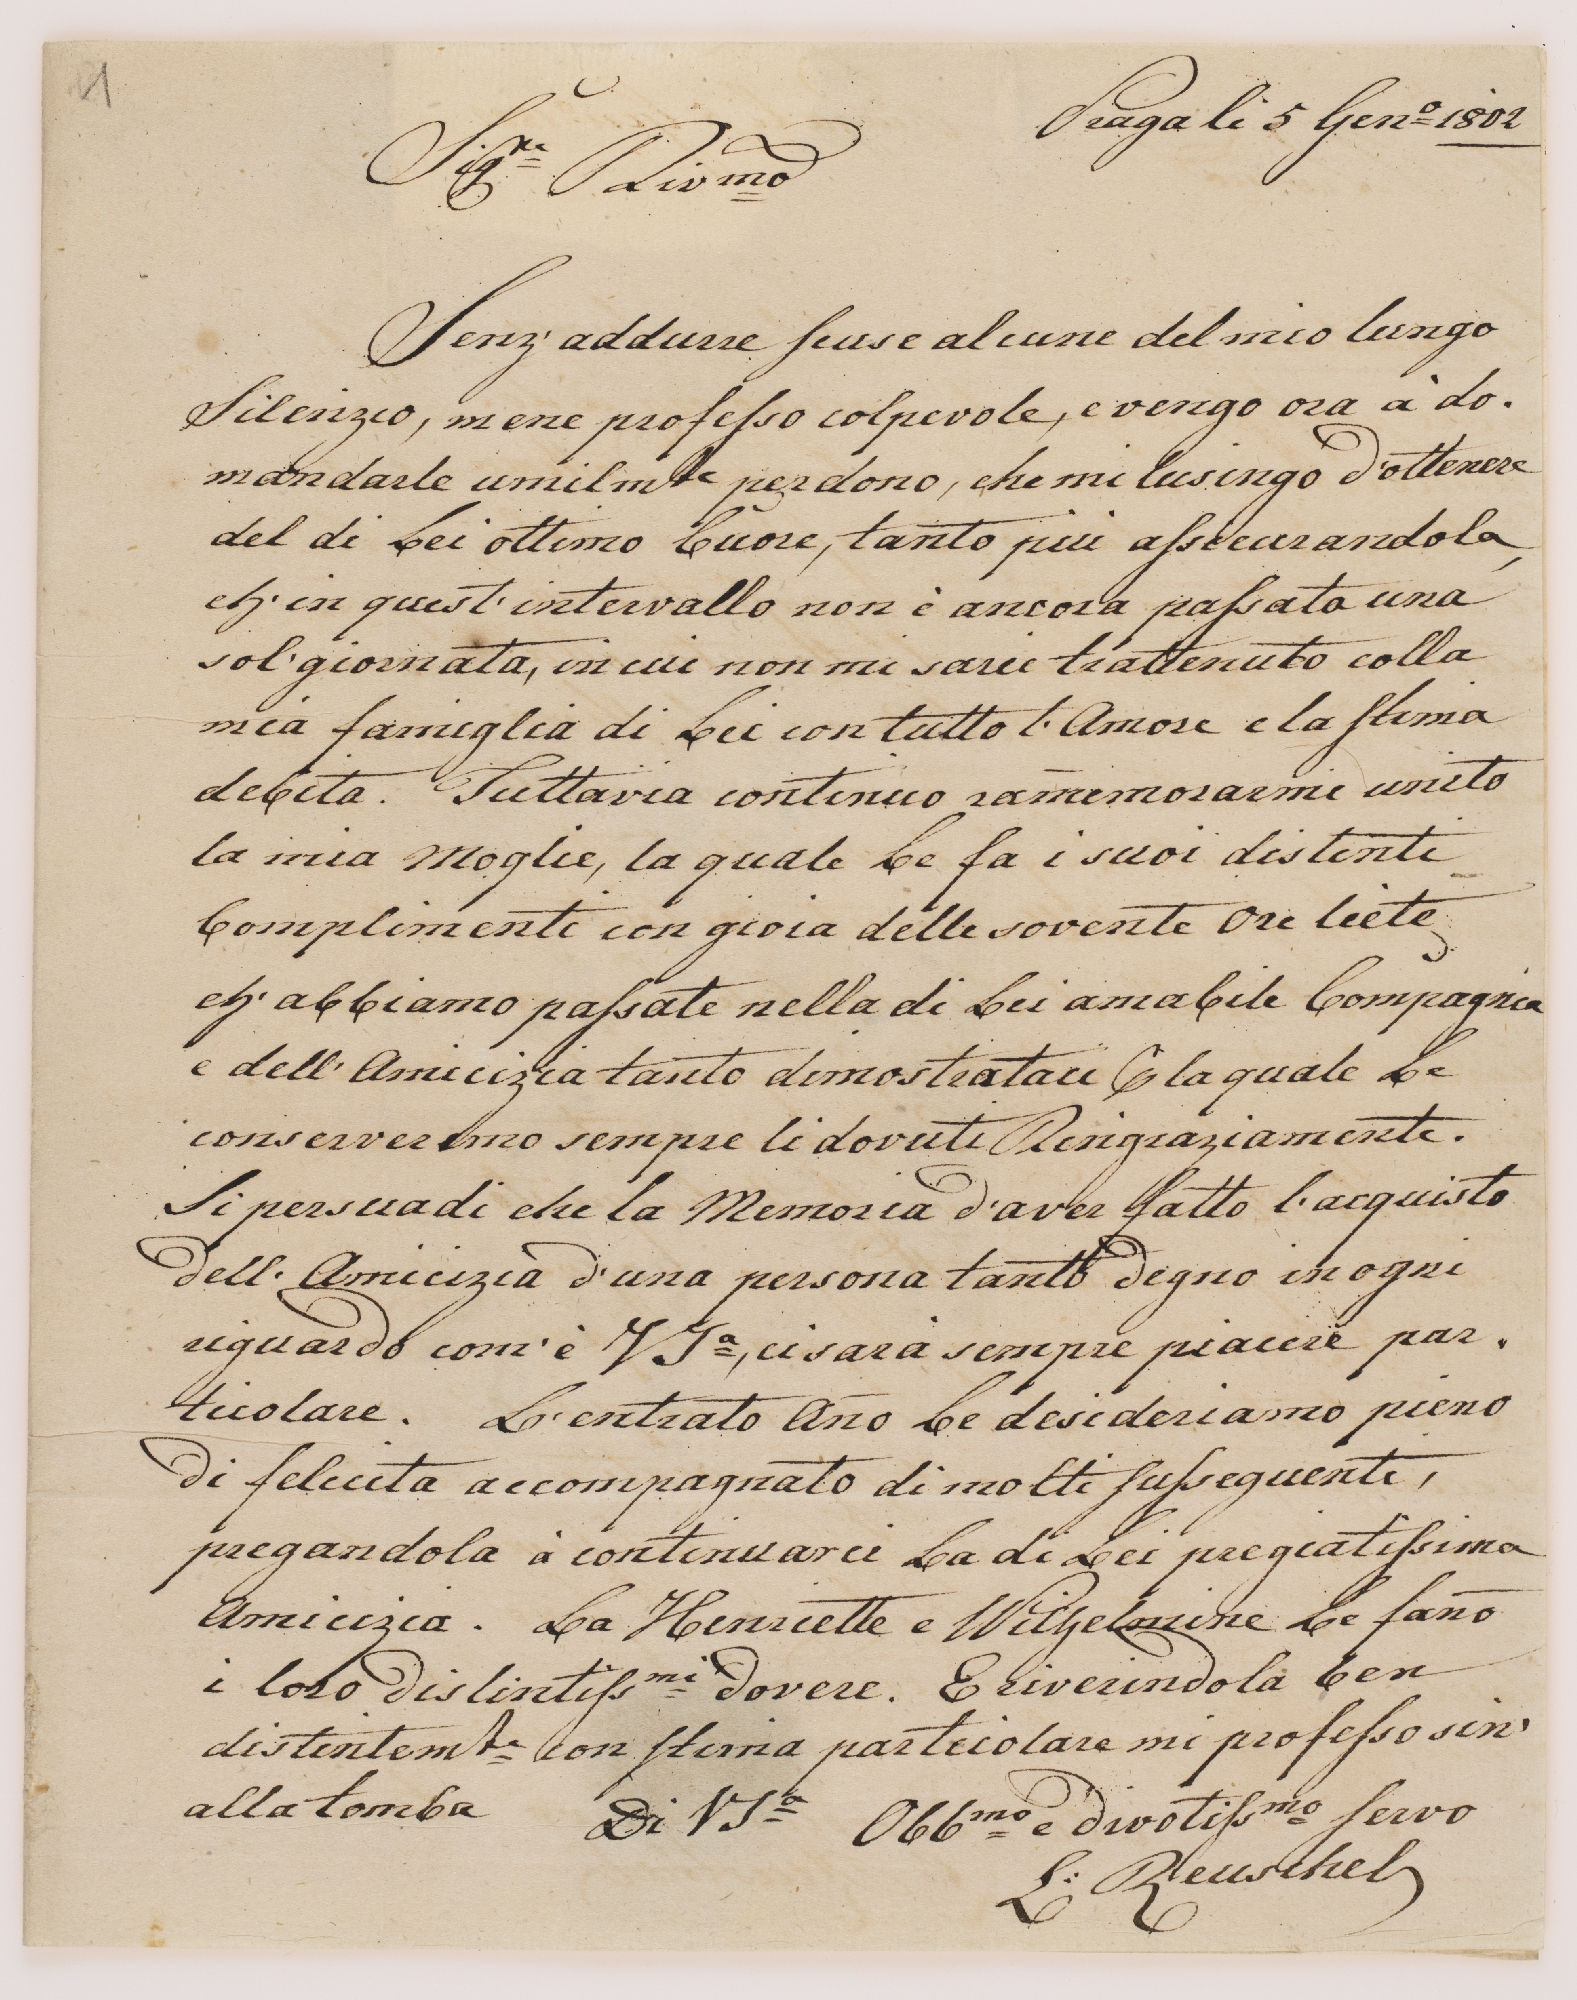 Praga li 5 Gen.o 1802
Sig.re Riv.mo
Senz' addurre scuse alcune del mio lungo
Silenzio, mene professo colpevole, e vengo ora à do.
mandarle umilm.te perdono, che mi lusingo d'ottenere
del di Lei ottimo Cuore, tanto più assicurandola,
ch' in quest' intervallo non è ancora passata una
sol' giornata, in cui non mi sarii trattenuto colla
mia famiglia di Lei con tutto l'Amore e la stima
debita. Tuttavia continuo ram̄emorarmi unito
la mia Moglie, la quale Le fa i suoi distinti
Complimenti con gioia delle sovente Ore liete,
ch' abbiamo passate nella di Lei amabile Compagnia
e dell' Amicizia tanto dimostrataci la quale Le
conserveremo sempre li dovuti Ringraziamenti.
Si persuadi che la Memoria d'aver fatto l'acquisto
dell' Amicizia d'una persona tanto degno in ogni
riguardo com' è VS.a, ci sarà sempre piacere par.
ticolare. L'entrato An̄o Le desideriamo pieno
di felicita accompagnato di molti susseguenti,
pregandola à continuarci La di Lei pregiatissima
Amicizia. La Henriette e Wilhelmine Le fan̄o
i loro distintiss.mi dovere. E riverindola ben
distintem.te con stima particolare mi professo sin'
alla tomba Di VS.a Obb.mo e divotiss.mo servo
L: Reuschel